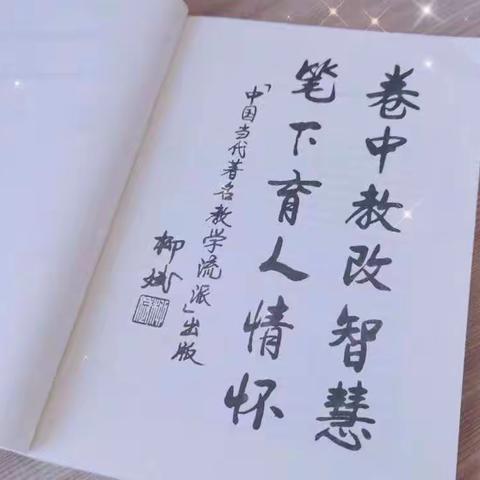 卷中教改智慧
笔下育人情怀
「中国当代著名教学流派」出版
柳斌